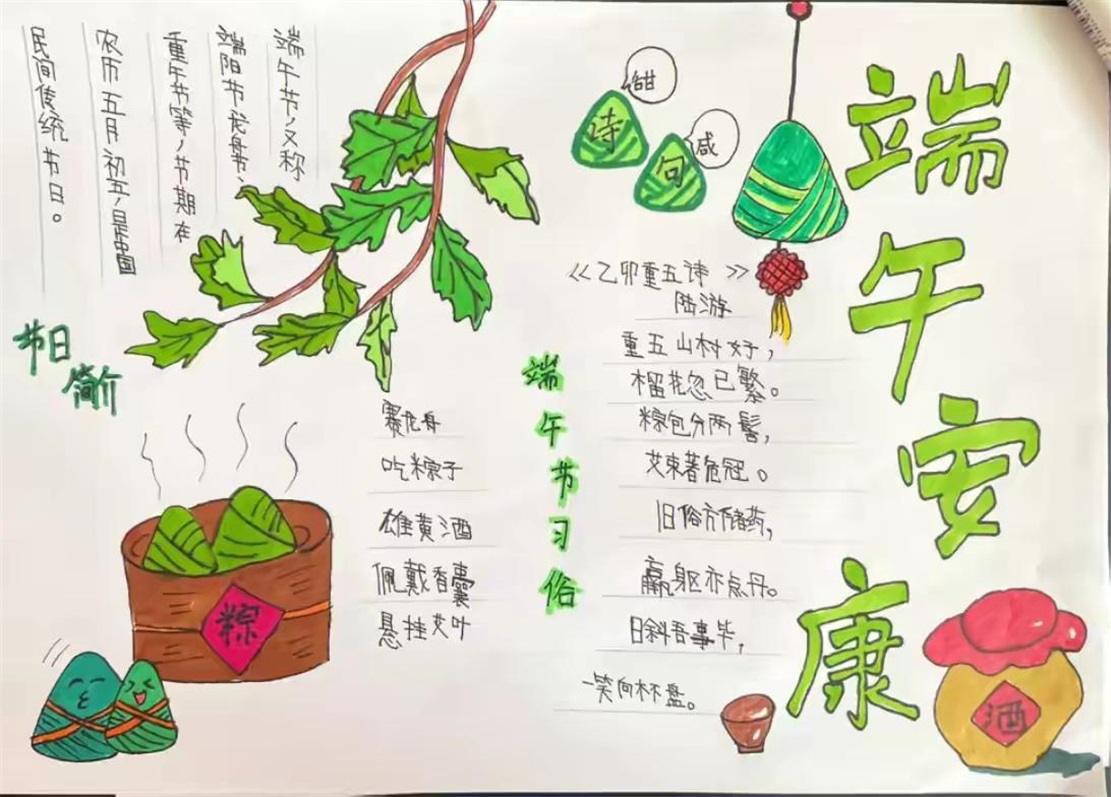 端午安康
诗句
甜
咸
《乙卯重五诗》
陆游
重五山村好，
榴花忽已繁。
粽包分两髻，
艾束著危冠。
旧俗方储药，
羸躯亦点丹。
日斜吾事毕，
一笑向杯盘。
酒
端午节习俗
赛龙舟
吃粽子
雄黄酒
佩戴香囊
悬挂艾叶
端午节，又称
端阳节、龙舟节、
重午节等，节期在
农历五月初五，是中国
民间传统节日。
节日
简介
粽